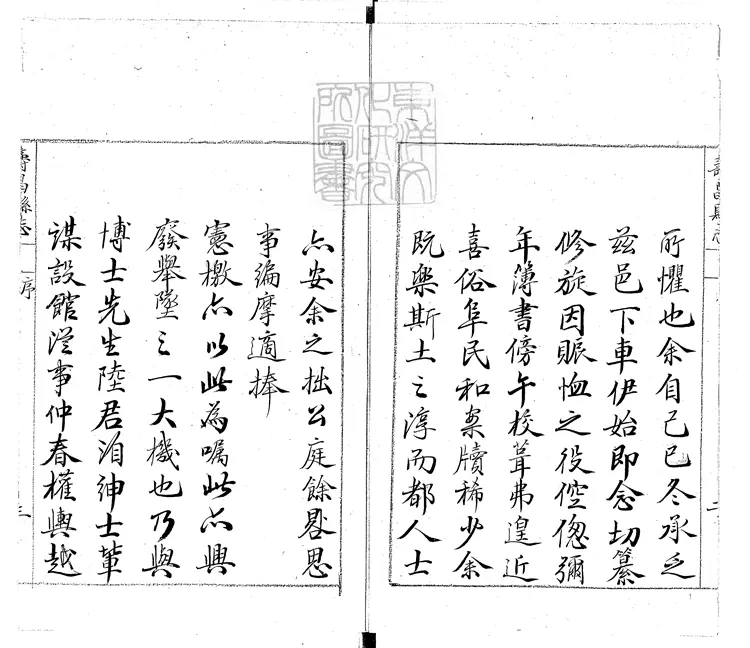 所懼也余自己巳冬承乏
兹邑下車伊始即念切纂
修旋因賑恤之役倥偬彌
年簿書傍午校葺弗遑近
喜俗阜民和案牘稀少余
既樂斯土之淳而都人士
亦安余之拙公庭餘晷思
事編摩適捧
憲檄亦以此為嘱此亦興
廢舉墜之一大機也乃與
博士先生陸君洎紳士輩
謀設館従事仲春權輿越
壽昌縣志
序
二
壽昌縣志
序
三
東洋文
化研究
所圖書